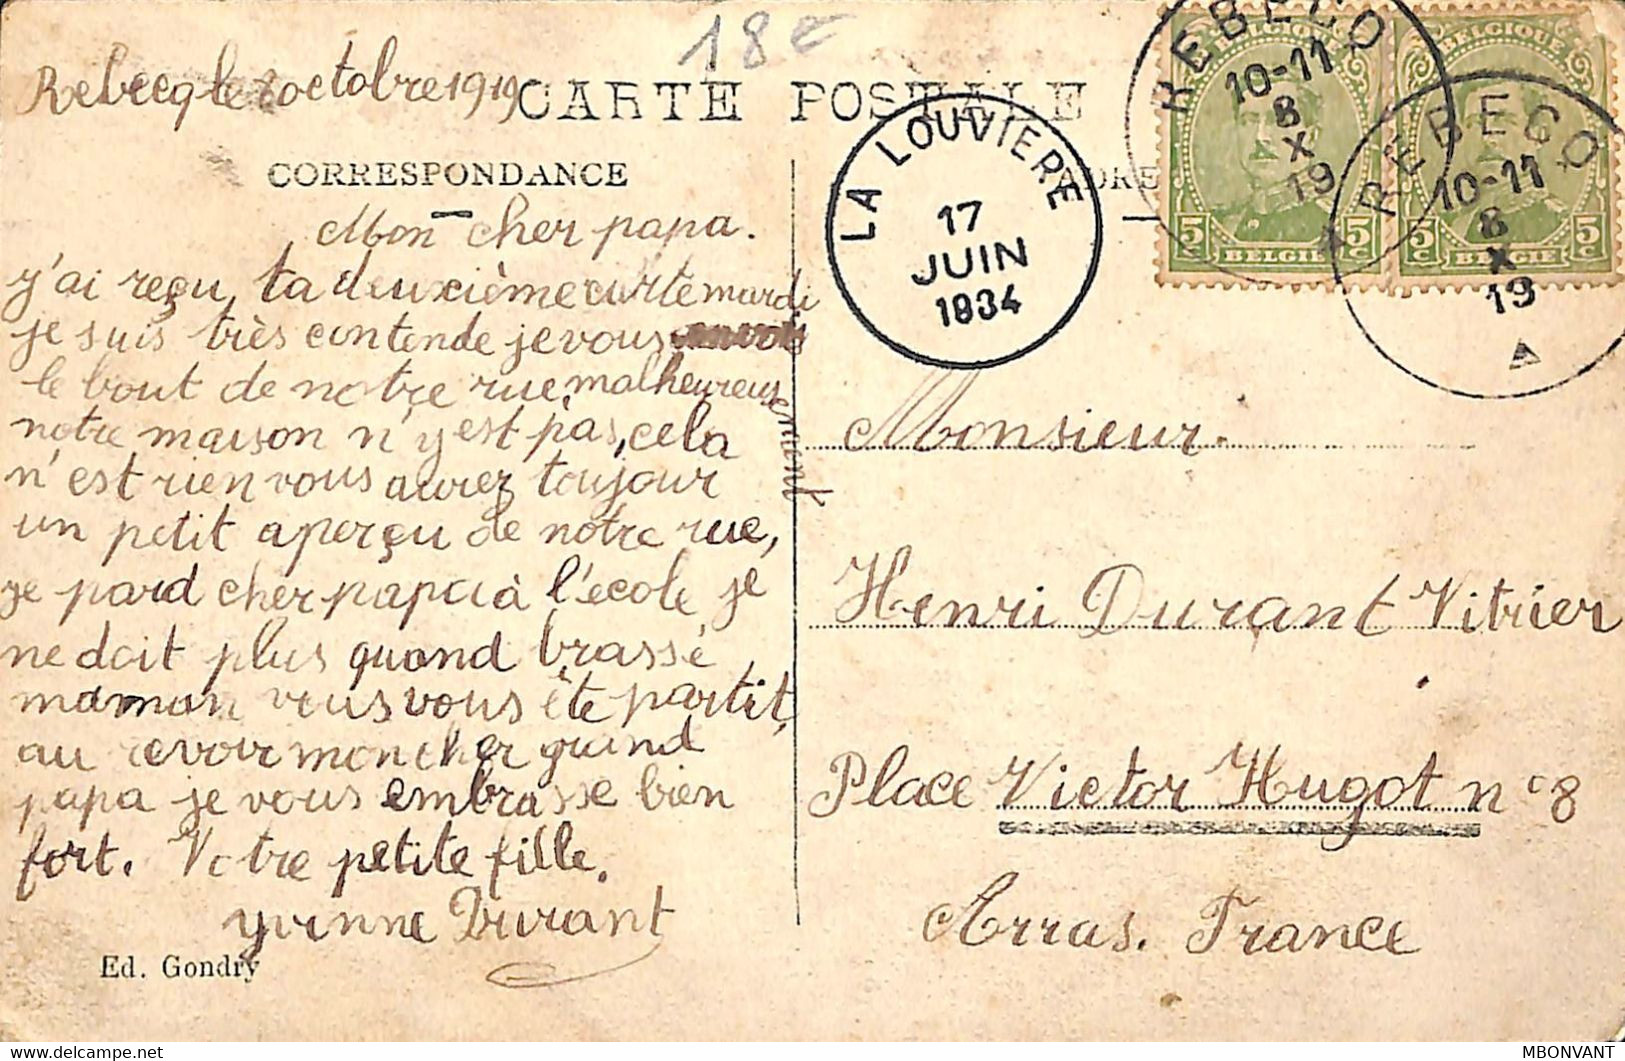 18 e
Rebecq le octobre 1919
CARTE POSTALE
CORRESPONDANCE
ADRE
REBECQ
10-11
8
X
19
REBECQ
10-11
8
X
19
BELGIQUE
5c 5c
BELGIE
BELGIQUE
5c 5c
BELGIE
LA LOUVIERE
17
JUIN
1934
Mon cher papa.
j'ai reçu ta deuxième carte mardi
je suis très contende je vous envois
le bout de notre rue, malheureusement
notre maison n'y est pas, cela
n'est rien vous aurez toujour
un petit aperçu de notre rue,
je pard cher papa à l'école je
ne doit plus quand brassé
maman vous vous ête partit,
au revoir mon cher grand
papa je vous embrasse bien
fort. Votre petite fille.
yvonne Durant
Ed. Gondry
Monsieur.
Henri Durant Vitrier
Place Victor Hugot n° 8
Arras. France
MBONVANT